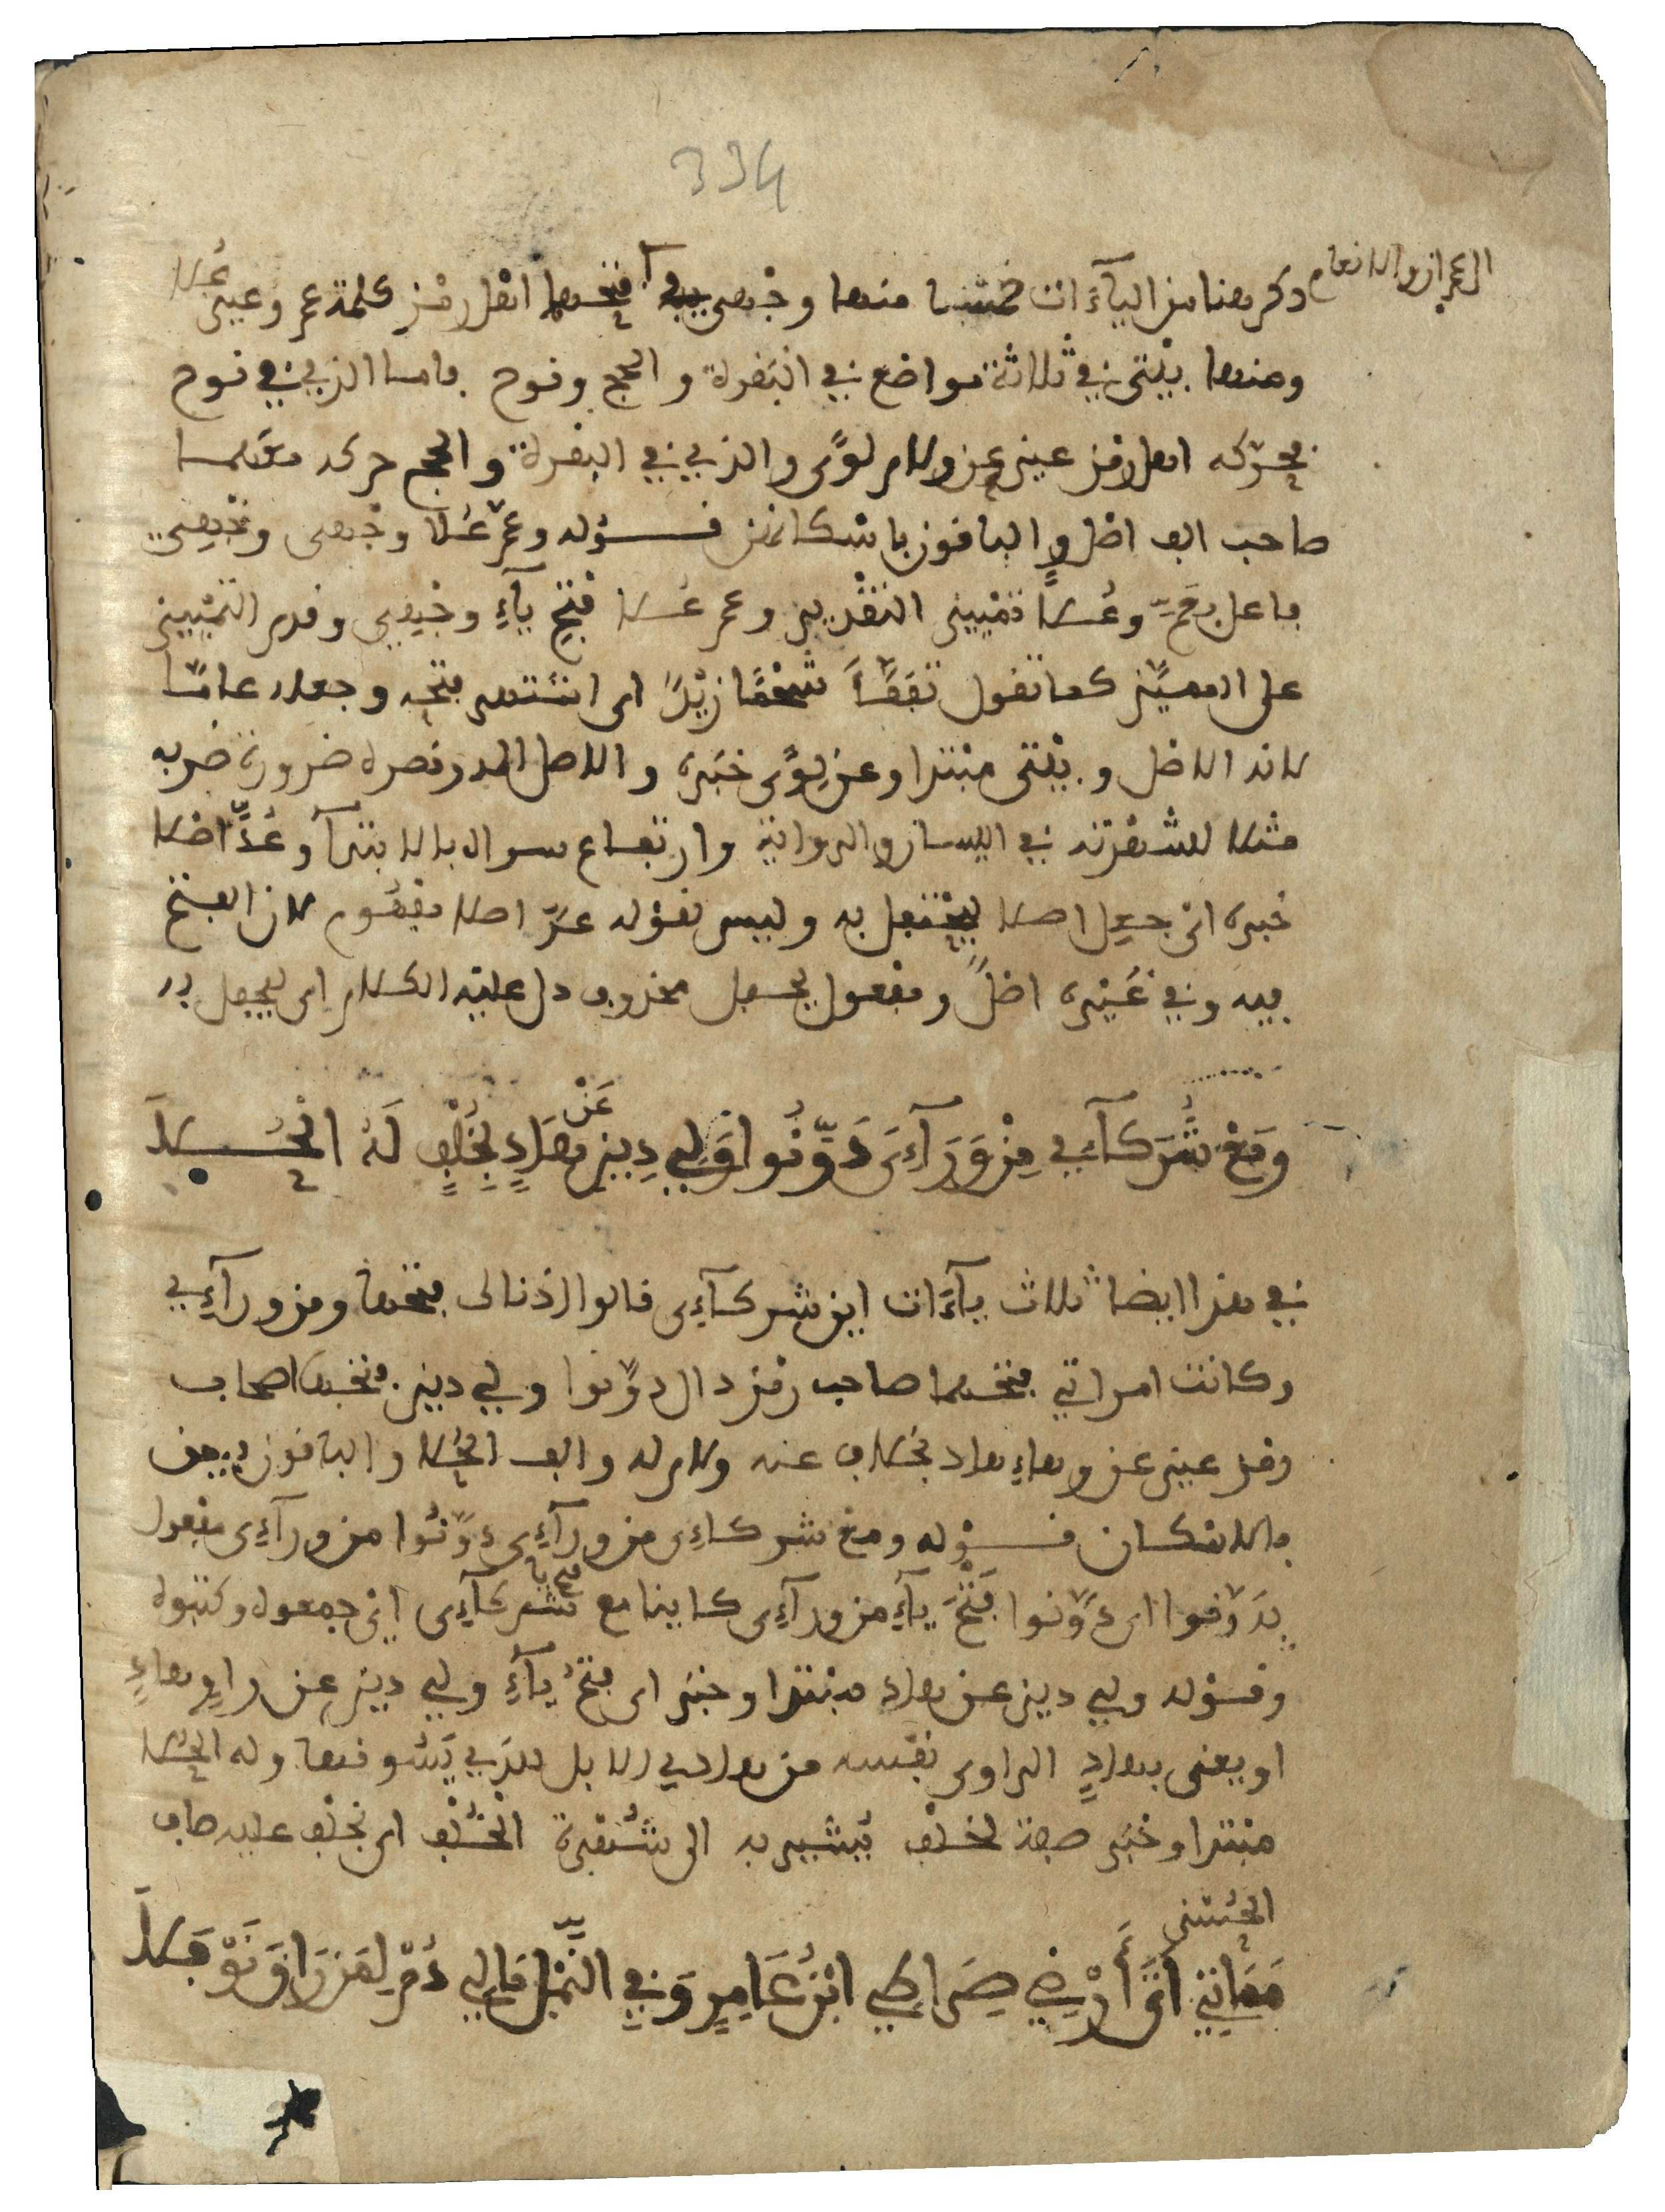 334
ال عمران والانعام
ذكر هنا من الياءات خمسا منها وجهي فيهما فتحها اهل رمز كلمة عم وعين علا
ومنها بيتي في ثلاثة مواضع في البقرة والحج ونوح فاما الذي في نوح
فحركه اهل رمز عين عن ولام لوى والذي في البقرة والحج حركه معهما
صاحب الف اصلا والباقون باسكانهن قوله وعم علا وجهي وجهي
فاعل بعم وعلا تمييز التقدير وعم علا فتح ياء وجهي وقدم التمييز
على المميز كما تقول تفقأ شحما زيد اى اشتهر فتحه وجعله عاما
لانه الاصل وبيتي مبتدا وعن لوى خبره والاصل المد وقصره ضرورة ضربه
مثلا لشهرته في اللسان والرواية وارتفاع سواه بالابتدآ وعد اصلا
خبره اى جعل اصلا ليحتفل به وليس لقوله عد اصلا مفهوم لان الفتح
فيه وفي غيره اصل ومفعول يحفل محذوف دل عليه الكلام اى ليحفل به
وَمَعْ شُرَكَآءِي مِنْ وَرَآءِيَ دَوَّنُوا وَلِي دِينِ عَنْ هَادٍ بِخُلْفٍ لَهُ الْحُلَا
في هذا ايضا ثلاث ياءات اين شركآءي قالوا اذناك فتحها ومن ورآءي
وكانت امراتي فتحهما صاحب رمز دال دونوا ولي دين فتحها اصحاب
رمز عين عن وهاء هاد بخلاف عنه ولام له والف الحلا والباقون
بالاسكان قوله ومع شركاءي من ورآءي دونوا من ورآءي مفعول
بدونوا اى دونوا فتح ياء من ورآءي كاينا مع فتح يا شركآءي اى جمعوه وكتبوه
وقوله ولي دين عن هاد مبتدا وخبر اى فتح ياء ولي دين عن راو هاد
او يعني بهاد الراوي نفسه من هادي الابل للذي يسوقها وله الحلا
مبتدا وخبر صفة لخلف يشير به الى شهرة الخلف اى بخلف عليه صاف
الحسنى
مَمَاتِي أَتَى أَرْضِي صِرَاطِي ابْنُ عَامِرٍ وَفِي النَّمْلِ مَالِي دُمْ لِمَنْ رَاقَ نَوْفَلَا